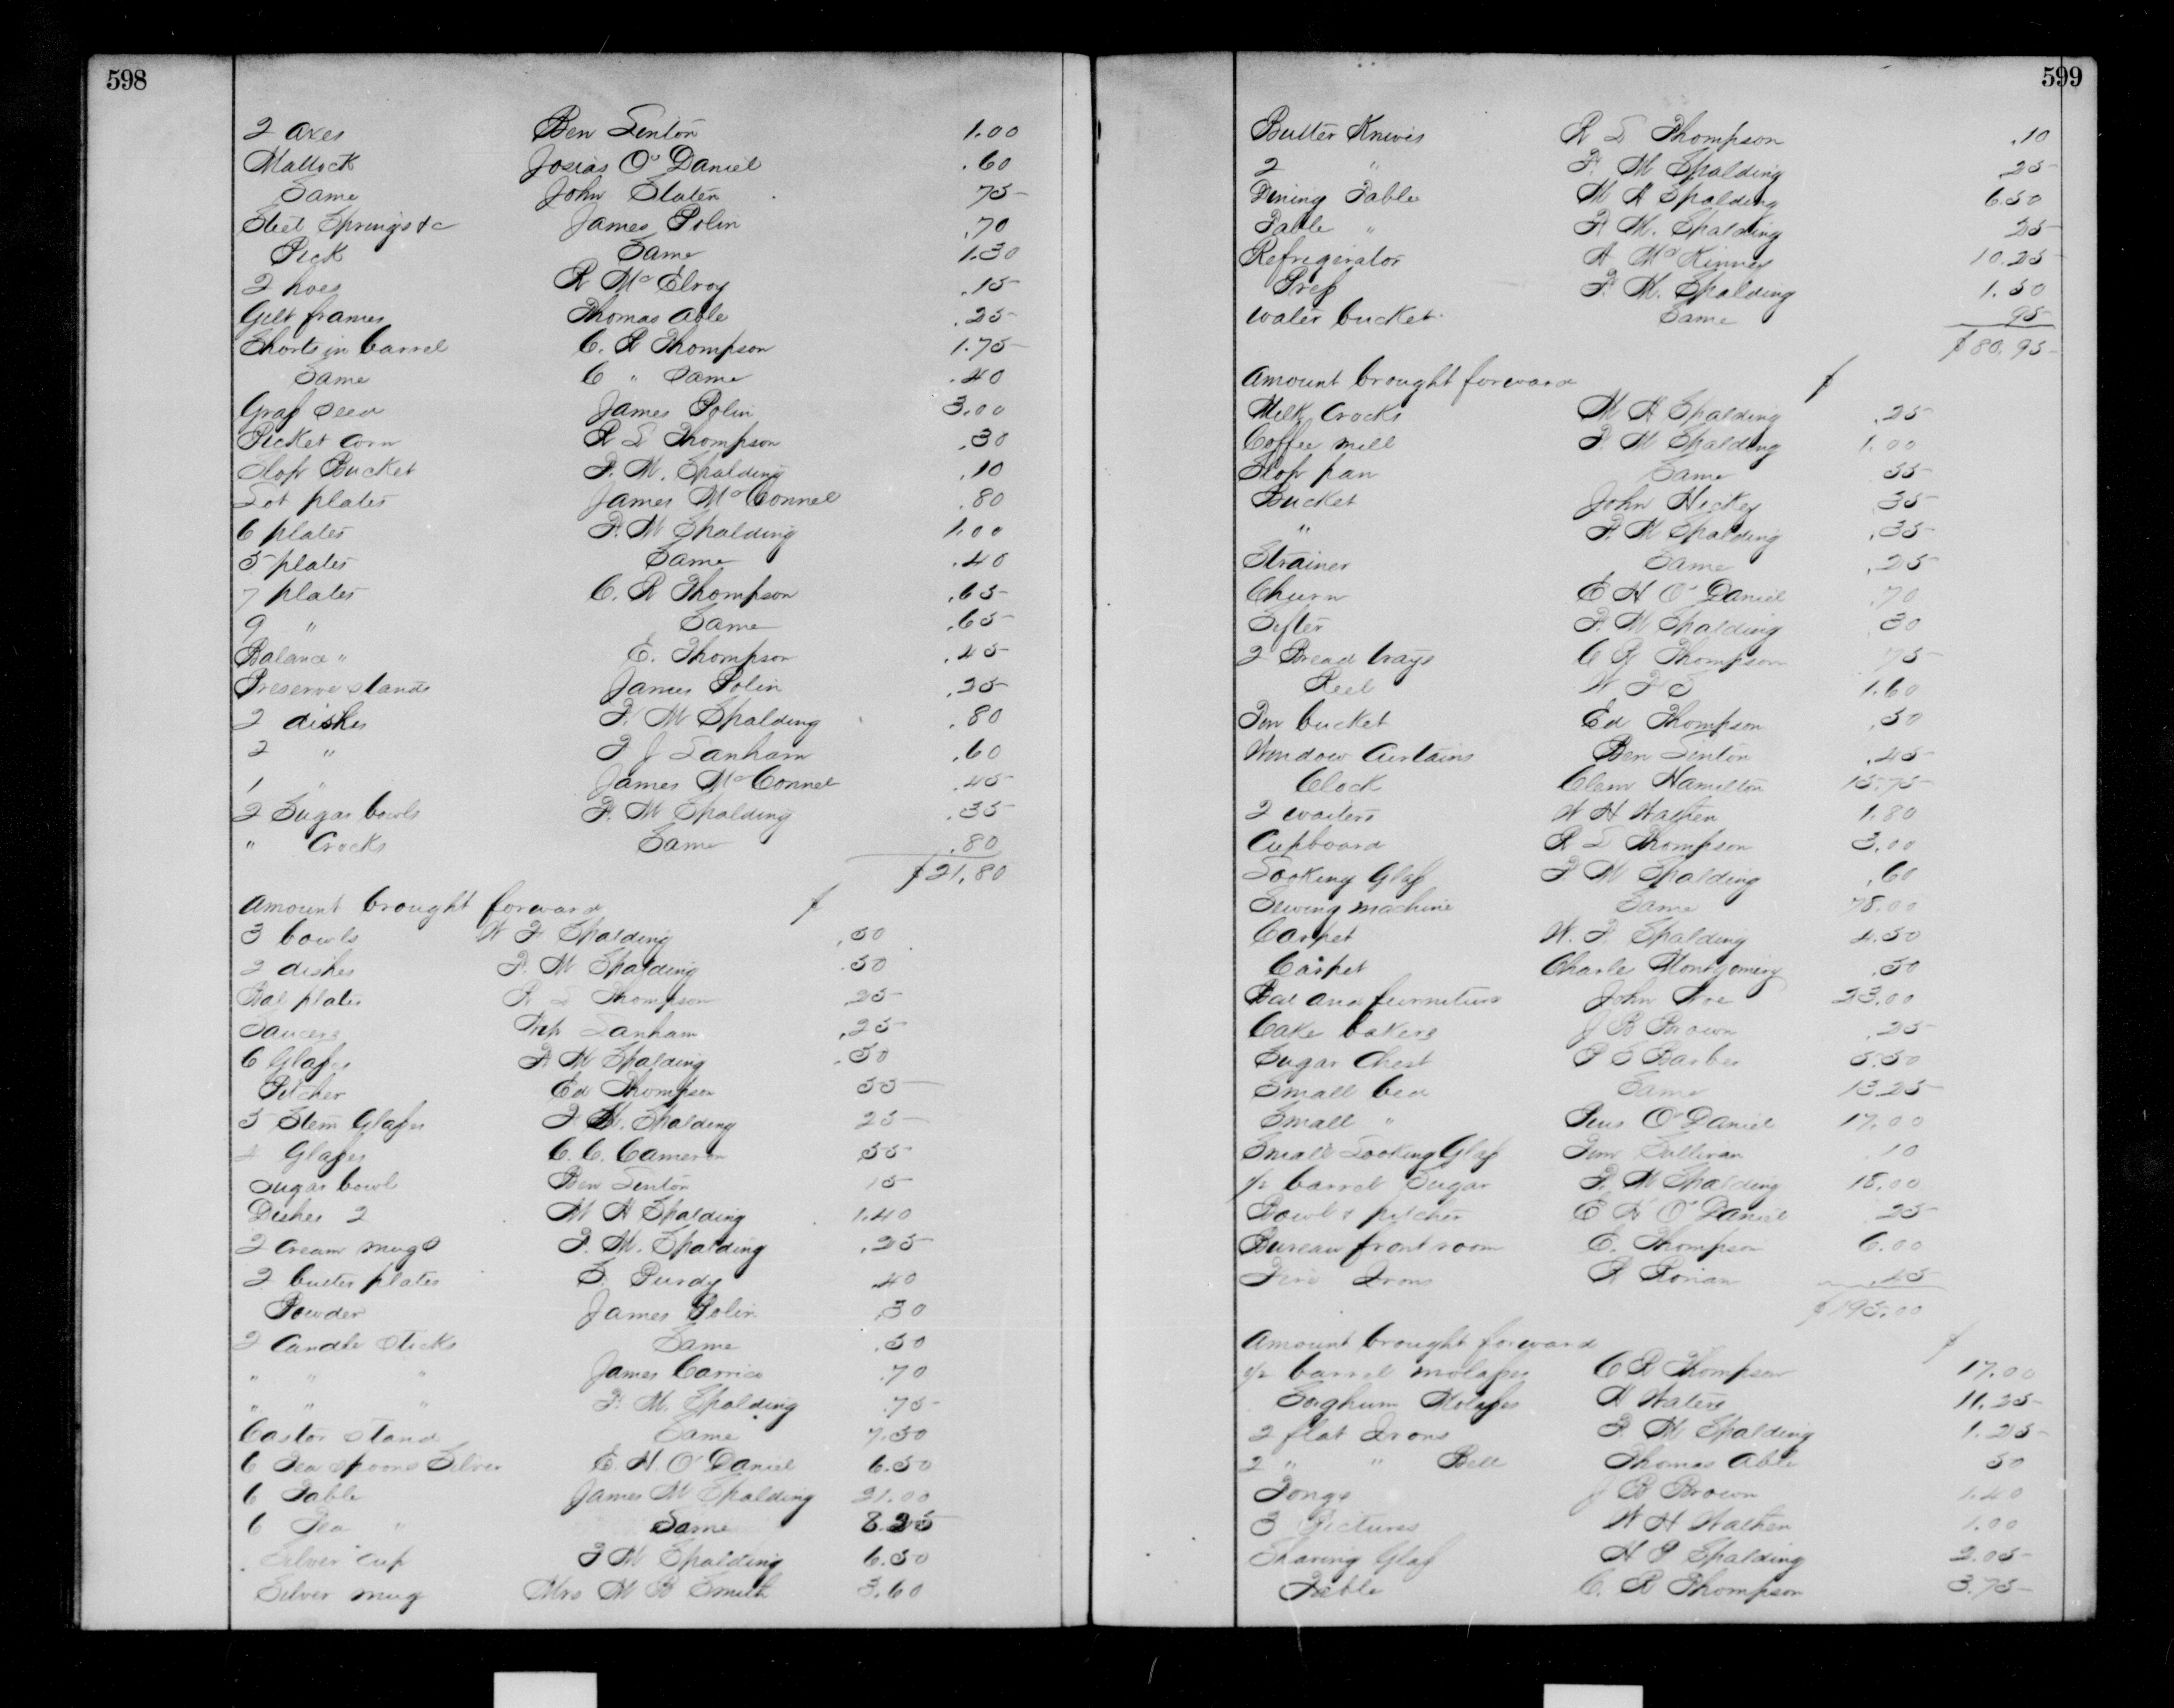 598
2 axes Ben Lenton 1.00
Mattock Josias O'Daniel .60
Same John Slaten 75
Steel Springs &c James Polin .70
Pick Same 1.30
2 hoes R McElroy .15
Gilt frames Thomas Able .25
Shorts in barrel C. R Thompson 1.75
Same C " Same .40
Grass seed James Polin 3.00
Picket corn R L Thompson .30
Slop Bucket F. M. Spalding .10
Lot plates James McConnel .80
6 plates F. M Spalding 1.00
5 plates Same .40
7 plates C. R Thompson .65
9 " Same .65
Balance " E. Thompson .45
Preserve stands James Polin .25
2 dishes F. M Spalding .80
2 " F J Lanham .60
1 " James McConnel .45
2 Sugar bowls F. M Spalding .35
" Crocks Same .80
$21.80
Amount brought forward $
3 bowls W F Spalding .50
2 dishes F. M Spalding .50
Bal plates R L Thompson 25
Saucers Lanham .25
6 Glasses F M Spalding .50
Pitcher Ed Thompson 55
5 Stem Glasses F M. Spalding 25
Glasses C. C. Cameron 55
Sugar bowl Ben Lenton 15
Dishes 2 M H Spalding 1.40
2 cream mugs F. M. Spalding .25
2 butter plates S. Purdy .40
Powder James Polin .30
2 Candle sticks Same .50
" " " James Carrico .70
" " " F. M. Spalding .75
Castor stand Same 7.50
6 Tea spoons Silver E. H. O'Daniel 6.50
6 Table James M Spalding 21.00
6 Tea " Same 8.25
Silver cup F M Spalding 6.50
Silver mug Mrs M B Smith 3.60
599
Butter Knives R L Thompson .10
2 " F. M Spalding 25
Dining Table M H Spalding 6.50
Table " F M. Spalding 25
Refrigerator A McKinney 10.25
Press F. M. Spalding 1.50
water bucket Same 95
$80.95
Amount brought forward $
Milk Crocks M H Spalding .25
Coffee mill F. M Spalding 1.00
Slop pan Same 55
Bucket John Hickey 35
" F. M Spalding .35
Strainer Same .25
Churn E H O'Daniel .70
Sifter F. M Spalding 30
2 Bread trays C R Thompson 75
Reel W F S 1.60
Tin bucket Ed Thompson .50
Window Curtains Ben Lenton .45
Clock Clem Hamilton 15.75
2 waiters W H Wathen 1.80
Cupboard R L Thompson 3.00
Looking Glass F M Spalding .60
Sewing machine Same 75.00
Carpet W. F. Spalding 4.50
Carpet Charles Montgomery .50
Bed and furniture John 23.00
Cake bakers J B Brown .25
Sugar Chest P S Barber 5.50
Small bed Same 13.25
Small " Pius O'Daniel 17.00
Small Looking Glass Tim Sullivan 10
1/2 barrel Sugar F. M Spalding 18.00
Bowl & pitcher E H O'Daniel 25
Bureau front room E. Thompson 6.00
Fire Irons R .45
$195.00
Amount brought forward $
1/2 barrel molasses C R Thompson 17.00
Sorghum Molasses H Waters 11.25
2 flat Irons F. M Spalding 1.25
2 " " Bell Thomas Able 50
Tongs J B Brown 1.40
3 Pictures W H Wathen 1.00
Shaving Glass H P Spalding 2.05
Table C. R Thompson 3.75